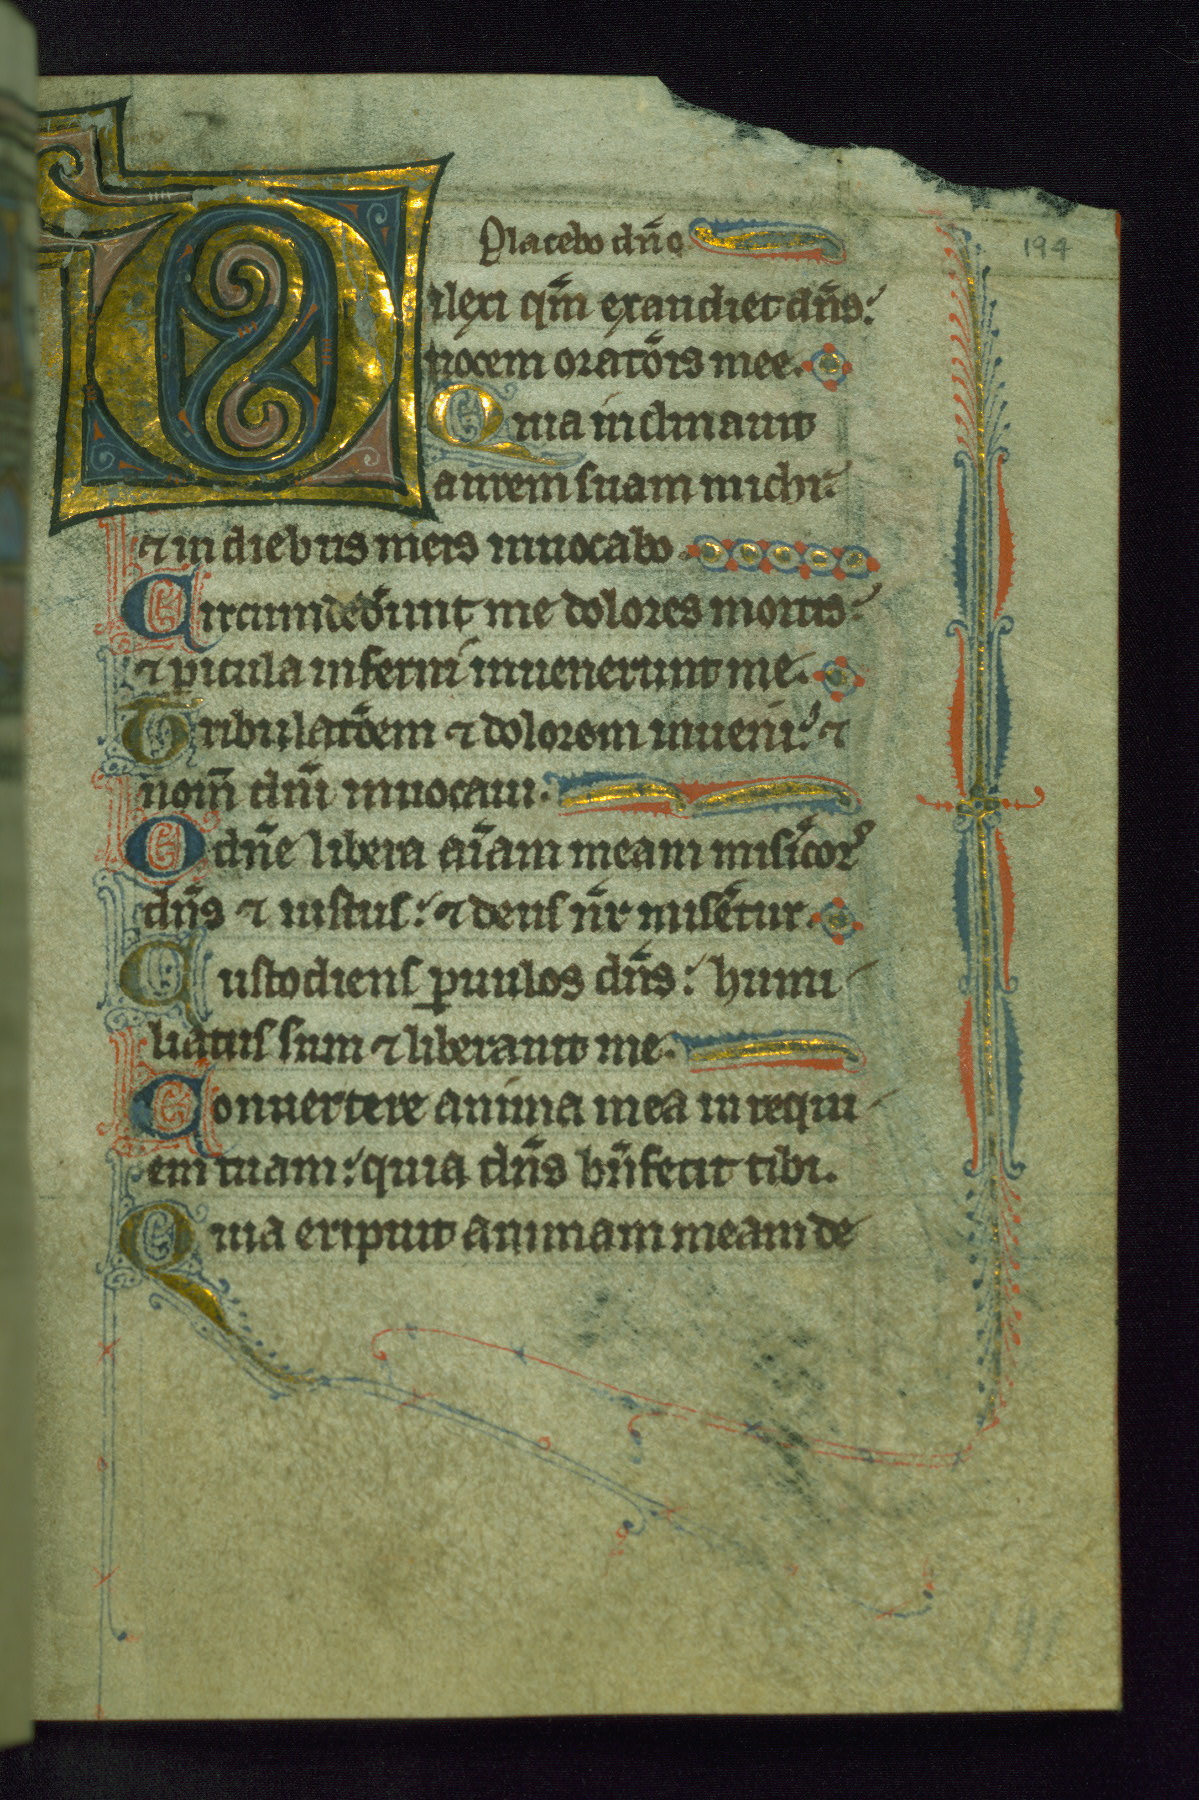 194
Placebo dn̄o
Dilexi qm̄ exaudiet dn̄s:
uocem orat̄ois mee.
Quia inclinauit
aurem suam michi:
⁊ in diebus meis inuocabo.
Circumded̄unt me dolores mortis:
⁊ ꝑicula inferni inuenerunt me.
Tribulat̄oem ⁊ dolorem inueni: ⁊
nom̄ dn̄i inuocaui.
O dn̄e libera an̄am meam misic̄orˢ
dn̄s ⁊ iustus: ⁊ deus nr̄ mise᷒tur.
Custodiens ꝑuulos dn̄s: humi
liatus sum ⁊ liberauit me.
Conuertere anima mea in requi
em tuam: quia dn̄s bn̄fecit tibi.
Quia eripuit animam meam de